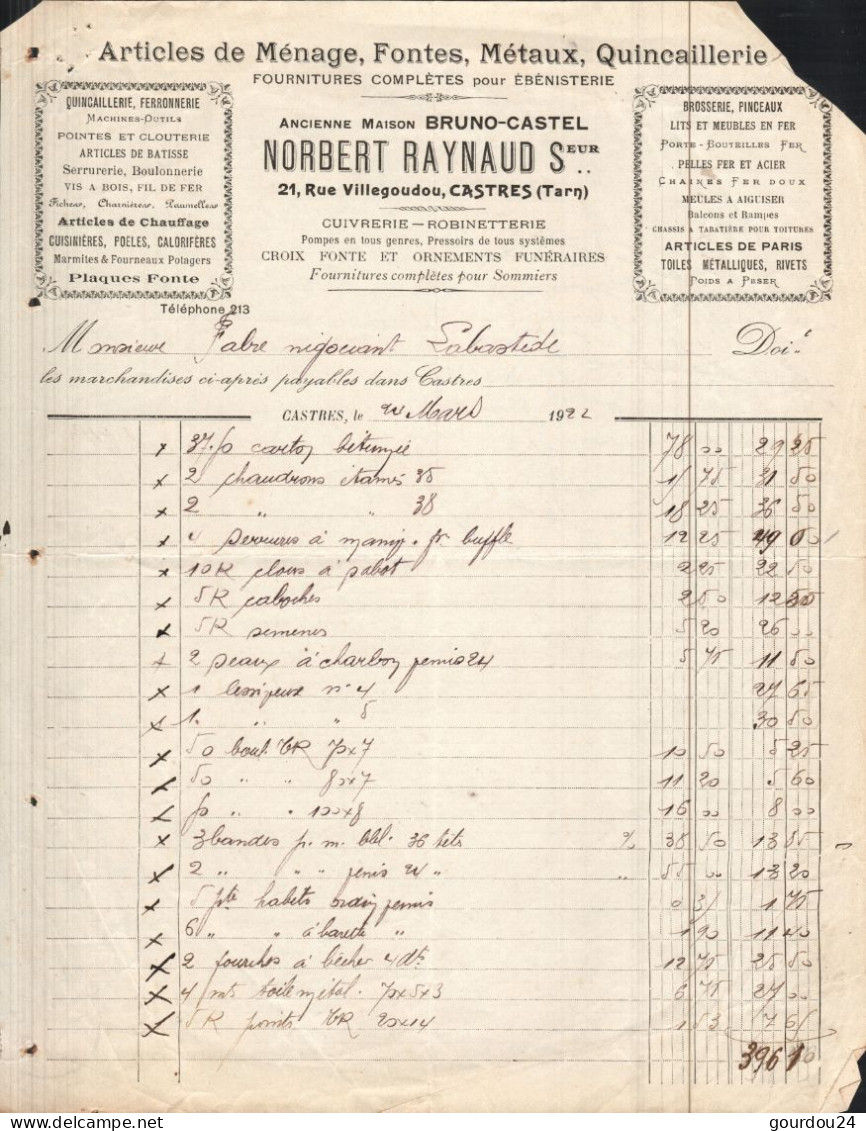 Articles de Ménage, Fontes, Métaux, Quincaillerie
FOURNITURES COMPLÈTES pour ÉBÉNISTERIE
QUINCAILLERIE, FERRONNERIE
MACHINES-OUTILS
POINTES ET CLOUTERIE
ARTICLES DE BATISSE
Serrurerie, Boulonnerie
VIS A BOIS, FIL DE FER
Fiches, Charnières, Paumelles
Articles de Chauffage
CUISINIÈRES, POELES, CALORIFÈRES
Marmites & Fourneaux Potagers
Plaques Fonte
Téléphone 213
ANCIENNE MAISON BRUNO-CASTEL
NORBERT RAYNAUD SEUR
21, Rue Villegoudou, CASTRES (Tarn)
CUIVRERIE — ROBINETTERIE
Pompes en tous genres, Pressoirs de tous systèmes
CROIX FONTE ET ORNEMENTS FUNÉRAIRES
Fournitures complètes pour Sommiers
BROSSERIE, PINCEAUX
LITS ET MEUBLES EN FER
PORTE-BOUTEILLES FER
PELLES FER ET ACIER
CHAINES FER DOUX
MEULES A AIGUISER
Balcons et Rampes
CHASSIS A TABATIÈRE POUR TOITURES
ARTICLES DE PARIS
TOILES MÉTALLIQUES, RIVETS
POIDS A PESER
Monsieur Fabre négociant Labastide Doit
les marchandises ci-après payables dans Castres
CASTRES, le 24 Mars 1922
x 37.50 carton bitumée 78 00 29 25
x 2 chaudrons étamés 35 15 75 31 50
x 2 " " 38 18 25 36 50
x 4 serrures à 12 25 49 00
x 10 K clous à sabot 2 25 22 50
x 5 K caboches 2 50 12 50
x 5 K semences 5 20 26 00
x 2 seaux à charbon vernis 24 5 75 11 50
x 1 lessiveuse n° 4 27 65
x 1 " " 5 30 50
x 50 boul. TR 70x7 10 50 5 25
x 50 " " 80x7 11 20 5 60
x 50 " " 100x8 16 00 8 00
x 3 bandes p. m. 36 % 38 50 13 85
x 2 " " " vernis 24 " " 55 00 13 20
x 5 pte habits vernis 0 35 1 75
x 6 " " " 1 90 11 40
x 2 fourches à bêcher 4 dts 12 75 25 50
x 4 mts toile métal. 70x5x3 6 75 27 00
x 5 K pointes TR 20x14 1 53 7 65
396 10
gourdou24